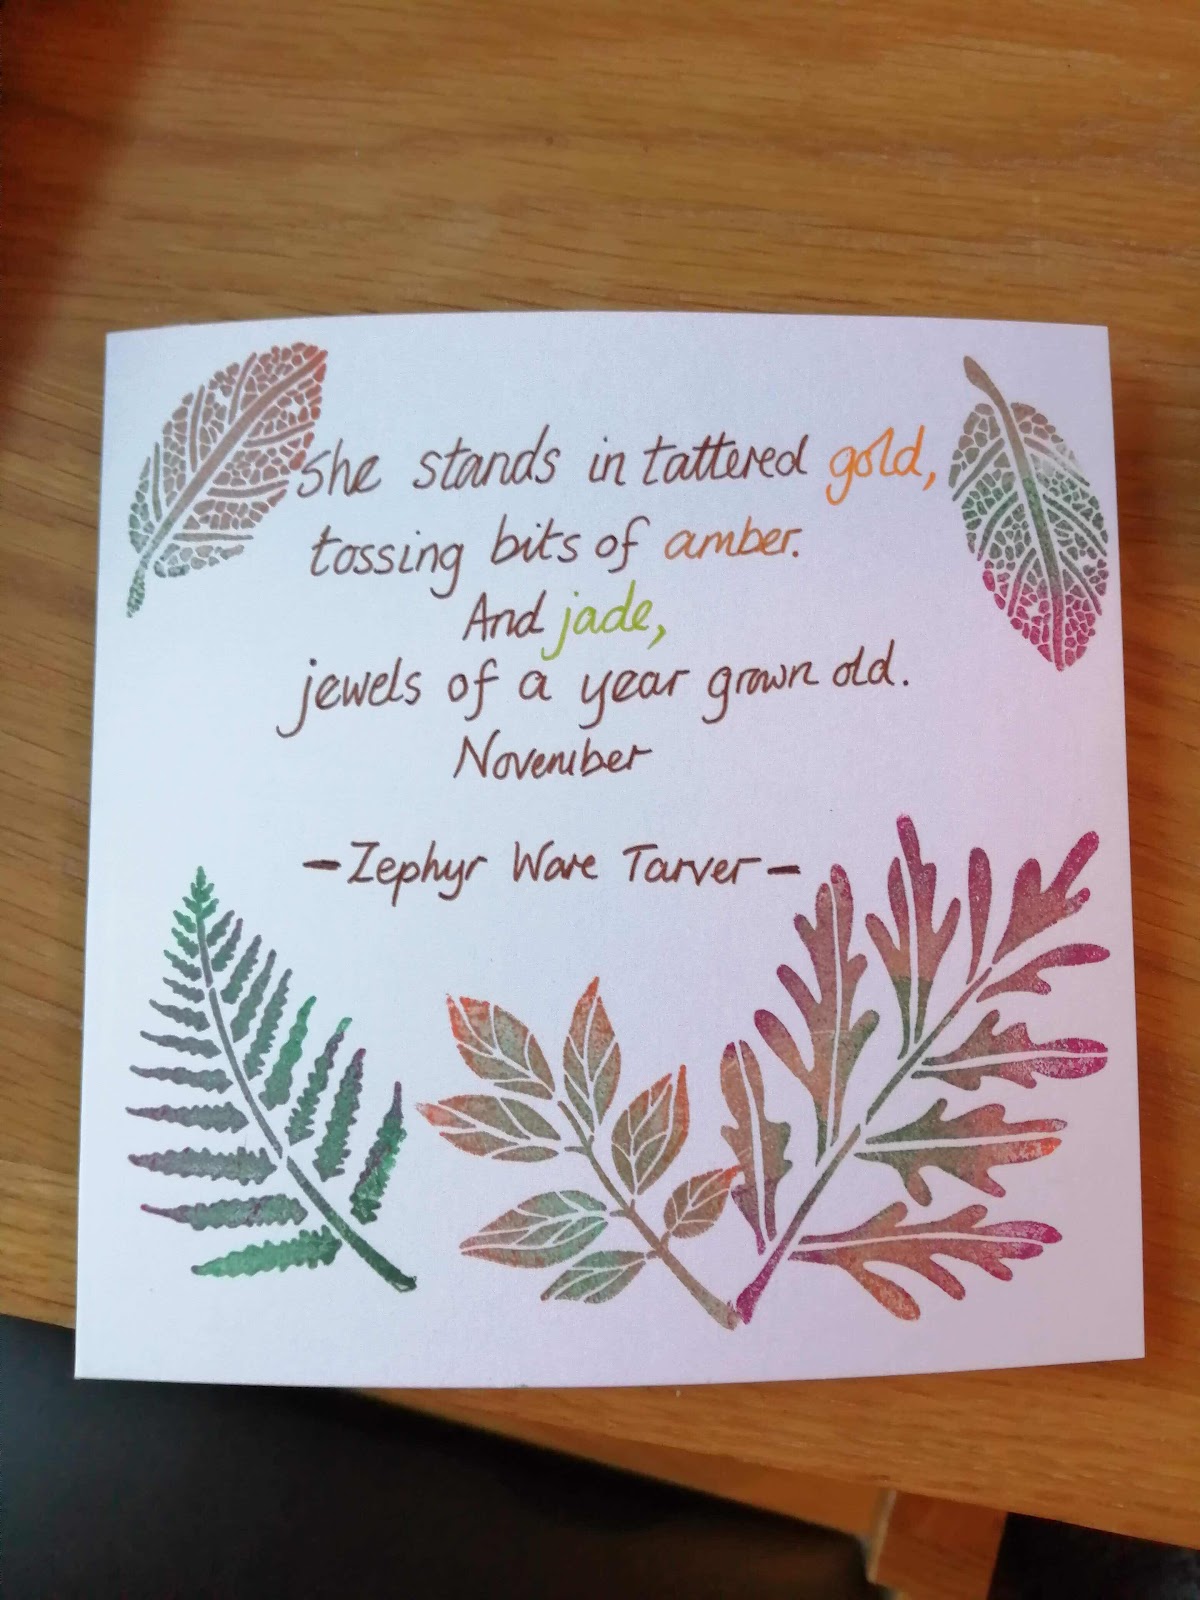 She stands in tattered gold,
tossing bits of amber.
And jade,
jewels of a year grown old.
November
-Zephyr Ware Tarver-